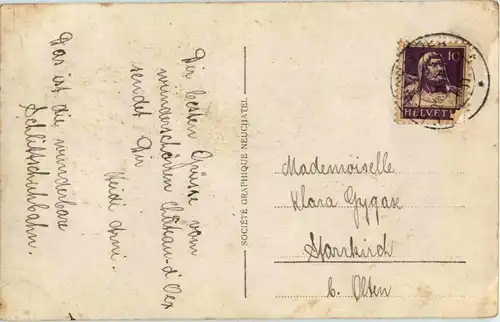 Die besten Grüsse vom
wunderschönen Château-d'Oex
sendet Dir
Heidi Arni.
Das ist die wunderbare
Schlittschuhbahn.
SOCIÉTÉ GRAPHIQUE NEUCHATEL
10
HELVETIA
Mademoiselle
Klara Gygax
Starrkirch
b. Olten